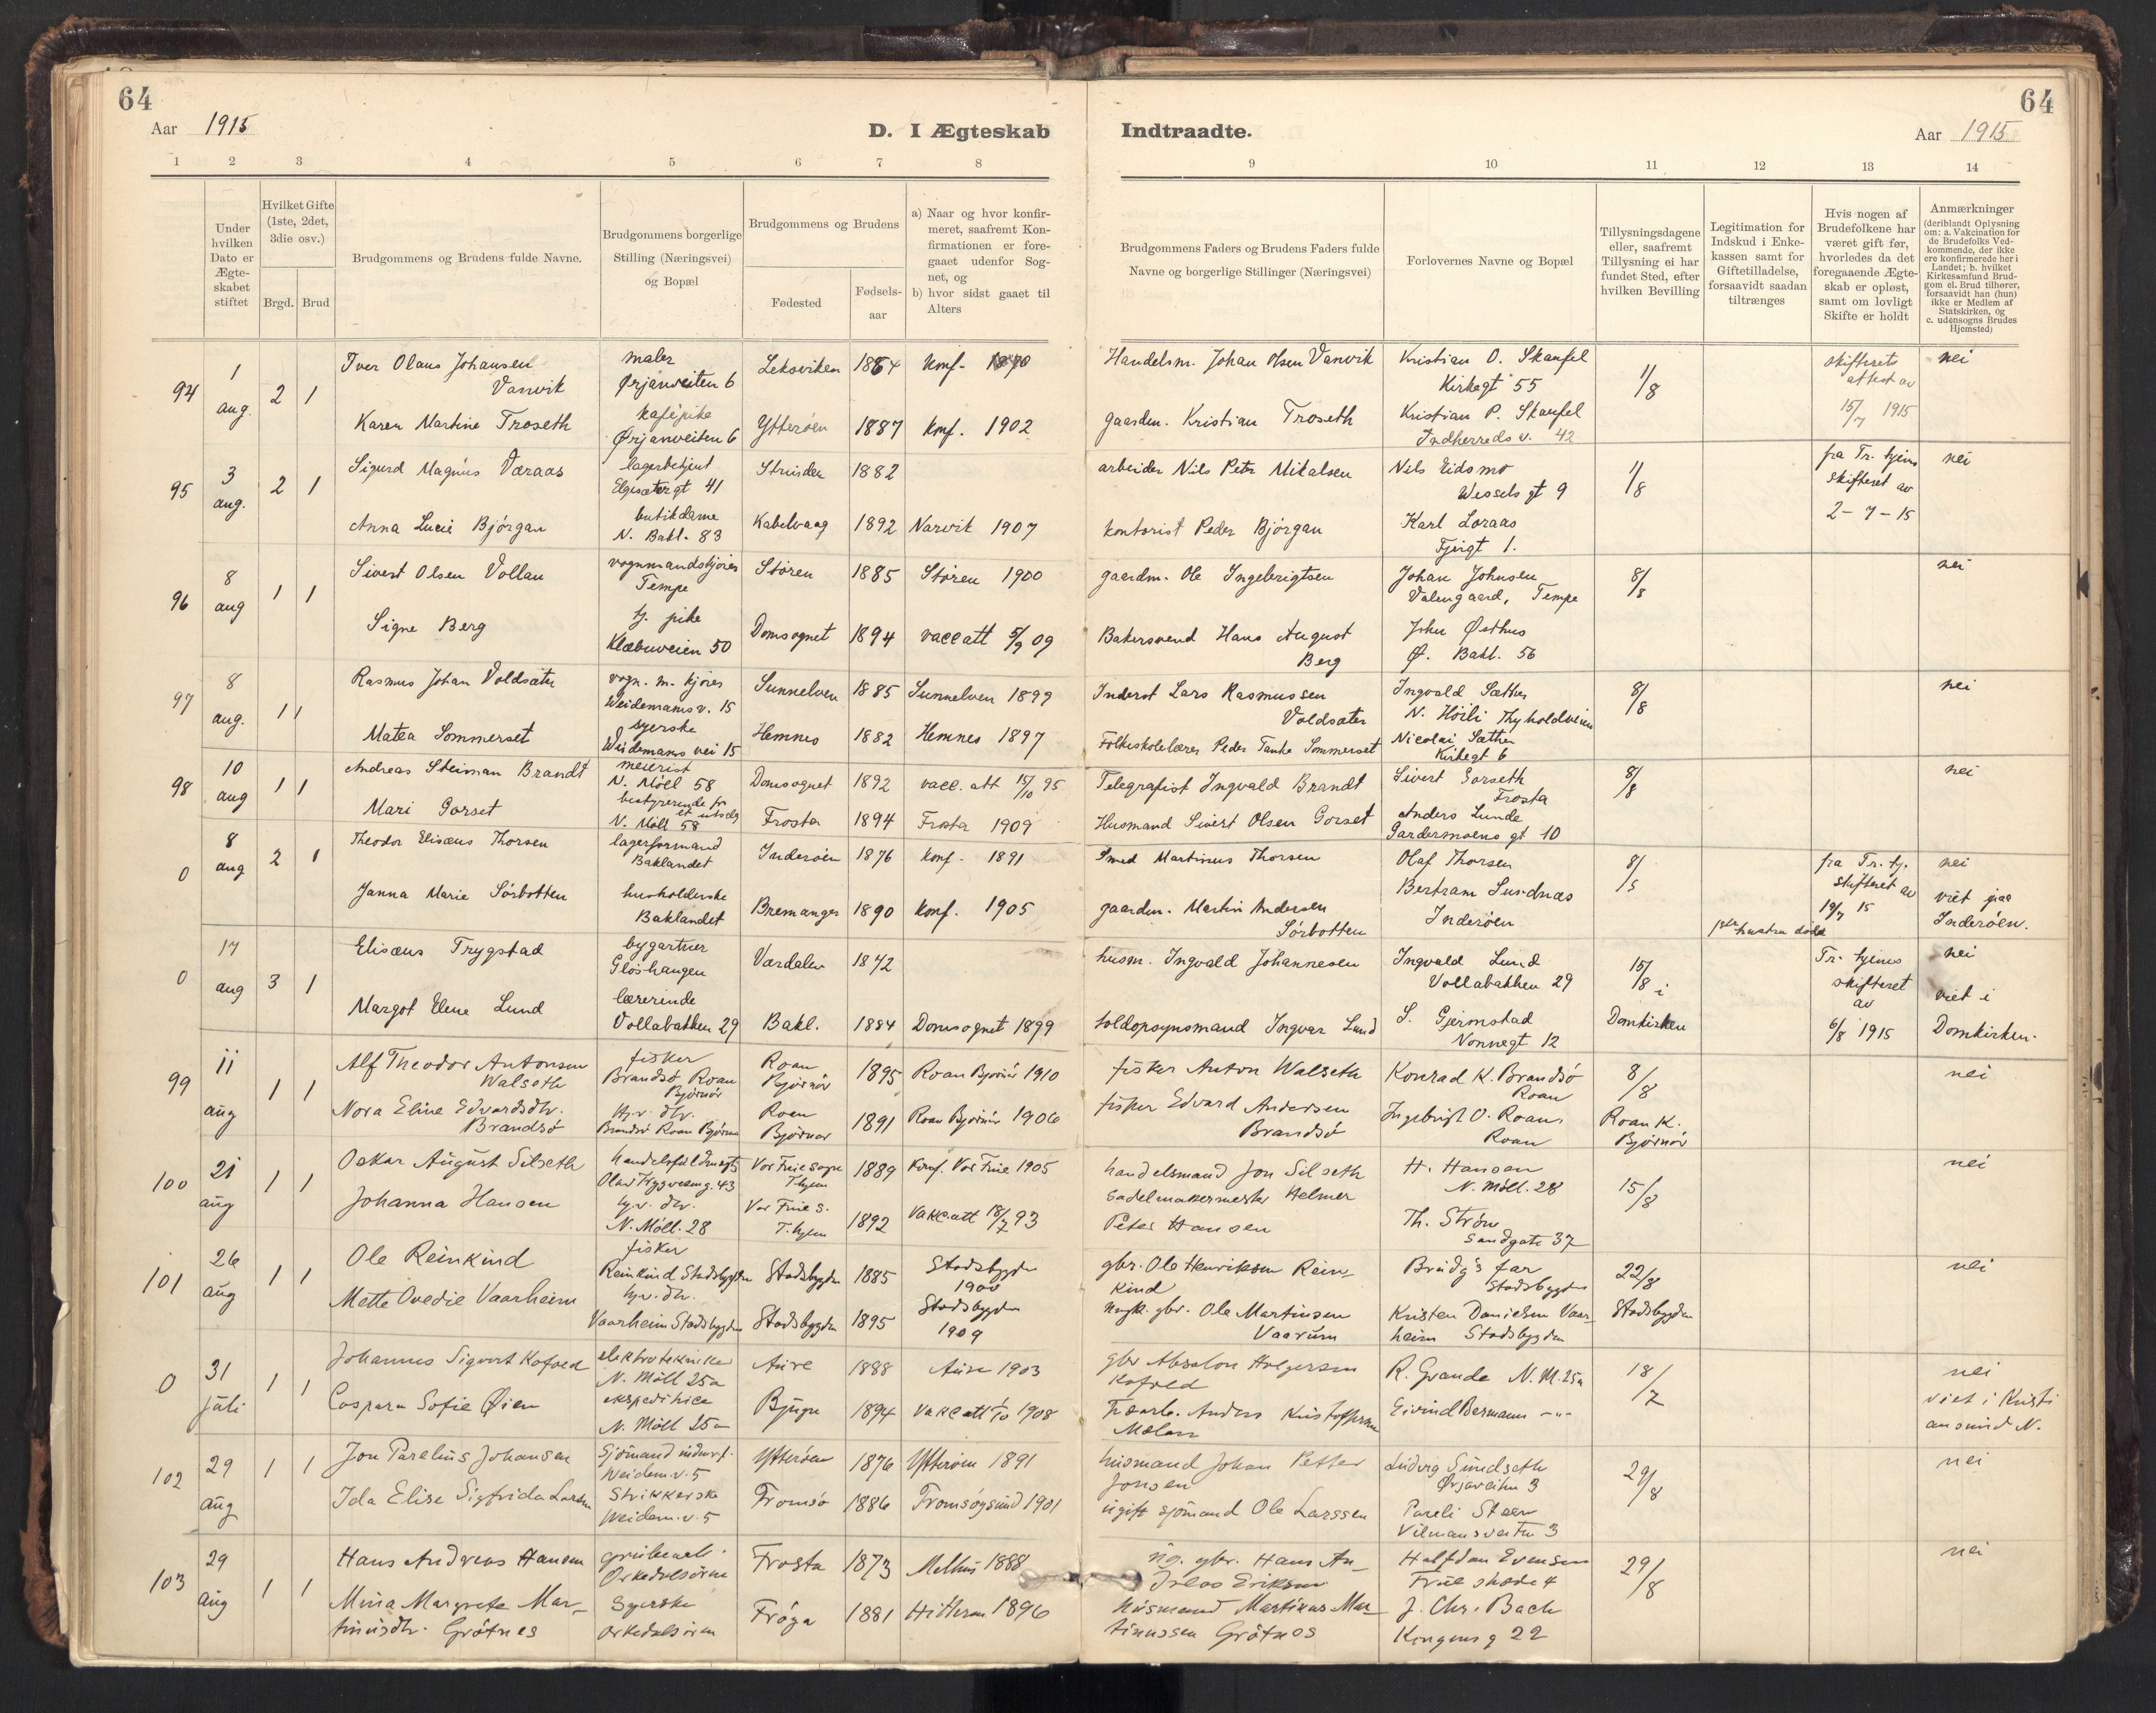 64
Aar 1915
D. I Ægteskab
Indtraadte.
Aar 1915
64
1 2 3 4 5 6 7 8
9 10 11 12 13 14
Under hvilken Dato er Ægteskabet stiftet
Hvilket Gifte (1ste, 2det, 3die osv.)
Brgd. Brud
Brudgommens og Brudens fulde Navne.
Brudgommens borgerlige Stilling (Næringsvei) og Bopæl
Brudgommens og Brudens
Fødested
Fødsels-aar
a) Naar og hvor konfirmeret, saafremt Konfirmationen er foregaaet udenfor Sognet, og
b) hvor sidst gaaet til Alters
Brudgommens Faders og Brudens Faders fulde Navne og borgerlige Stillinger (Næringsvei)
Forlovernes Navne og Bopæl
Tillysningsdagene eller, saafremt Tillysning ei har fundet Sted, efter hvilken Bevilling
Legitimation for Indskud i Enkekassen samt for Giftetilladelse, forsaavidt saadan tiltrænges
Hvis nogen af Brudefolkene har været gift før, hvorledes da det foregaaende Ægteskab er opløst, samt om lovligt Skifte er holdt
Anmærkninger (deriblandt Oplysning om: a. Vakcination for de Brudefolks Vedkommende, der ikke ere konfirmerede her i Landet; b. hvilket Kirkesamfund Brudgom el. Brud tilhører, forsaavidt han (hun) ikke er Medlem af Statskirken, og c. udensogns Brudes Hjemsted)
94 1 aug. 2 1 Iver Olaus Johansen Vanvik maler Ørjanveiten 6 Leksviken 1864 Konf. Handelsm. Johan Olsen Vanvik Kristian O. Skaufel Kirkegt 55 1/8 skifterets attest av 15/7 1915 nei
Karen Martine Troseth kafépike Ørjanveiten 6 Ytterøen 1887 Konf. 1902 gaardm. Kristian Troseth Kristian P. Skaufel Indherreds v. 42
95 3 aug. 2 1 Sigurd Magnus Væraas lagerbetjent Elgesætergt 41 Strinden 1882 arbeider Nils Petr Mikalsen Nils Eidsmo Wessels gt 9 1/8 fra Tr. tjens skifteret av 2-7-15 nei
Anna Lucie Bjørgan butikdame N. Bakl. 83 Kabelvaag 1892 Narvik 1907 kontorist Peder Bjørgan Karl Loraas 1.
96 8 aug 1 1 Sivert Olsen Vollan vognmandskjører Tempe Støren 1885 Støren 1900 gaardm. Ole Ingebrigtsen Johan Johnsen Valengaard, Tempe 8/8 nei
Signe Berg tj. pike Klæbuveien 50 Domsognet 1894 vacc att 5/9 09 Bakersvend Hans August Berg John Østhus Ø. Bakl. 56
97 8 aug. 1 1 Rasmus Johan Voldsæter vogn. m. kjører Weidemans v. 15 Sunnelven 1885 Sunnelven 1899 Inderst Lars Rasmussen Voldsæter Ingvald Sæther N. Høili Thyholdveien 8/8 nei
Matea Sommerset syerske Weidemans vei 15 Hemnes 1882 Hemnes 1897 Folkeskolelærer Peder Tanke Sommerset Nicolai Sæther Kirkegt 6
98 10 aug 1 1 Andreas Steiman Brandt meierist N. Møll 58 Domsognet 1892 vacc. att 15/10 95 Telegrafist Ingvald Brandt Sivert Gorseth Frosta 8/8 nei
Mari Gorset bestyrerinde for et utsalg N. Møll 58 Frosta 1894 Frosta 1909 Husmand Sivert Olsen Gorset Anders Lunde Gardermoens gt 10
0 8 aug 2 1 Theodor Elisæus Thorsen lagerformand Baklandet Inderøen 1876 Konf. 1891 Smed Martinus Thorsen Olaf Thorsen 8/5 fra Tr. tj. skifteret av 19/7 15 nei
Janna Marie Sørbotten husholderske Baklandet Bremanger 1890 Konf. 1905 gaardm. Martin Andersen Sørbotten Bertram Sundnæs Inderøen viet paa Inderøen.
0 17 aug 3 1 Elisæus Trygstad bygartner Gløshaugen Værdalen 1842 husm. Ingvald Johannesen Ingvald Lund Vollabakken 29 15/8 i hustru død Tr. tjenes skifteret av 6/8 1915 nei
Margot Elene Lund lærerinde Vollabakken 29 Bakl. 1884 Domsognet 1899 toldopsynsmand Ingvar Lund S. Gjermstad Nonnegt 12 Domkirken viet i Domkirken.
99 11 aug 1 1 Alf Theodor Antonsen Walseth fisker Brandsø Roan Bjørnør Roan Bjørnør 1895 Roan Bjørnør 1910 fisker Anton Walseth Konrad K. Brandsø Roan 8/8 nei
Nora Eline Edvardsdtr. Brandsø hj.v. dtr. Brandsø Roan Bjørnør Roan Bjørnør 1891 Roan Bjørnør 1906 fisker Edvard Andersen Brandsø Ingebrigt O. Roan, Roan Roan K. Bjørnør
100 21 aug 1 1 Oskar August Silseth handelsfuldmægt. Olav Trygvesøng. 43 Vor Frue sogn Thjem 1889 Konf. Vor Frue 1905 handelsmand Jon Silseth H. Hansen N. Møll. 28 15/8 nei
Johanna Hansen hj.v. dtr. N. Møll. 28 Vor Frue s. T.hjem 1892 Vakc att 18/7 93 Sadelmakermester Helmer Peter Hansen Th. Strøm Sandgate 37
101 26 aug 1 1 Ole Reinkind fisker Reinkind Stadsbygden Stadsbygden 1885 Stadsbygden 1900 gbr. Ole Henriksen Reinkind Brudg's far Stadsbygden 22/8 nei
Mette Ovedie Vaarheim hj.v. dtr. Vaarheim Stadsbygden Stadsbygden 1895 Stadsbygden 1909 gbr. Ole Martinsen Vaarum Kristen Danielsen Vaarheim Stadsbygden Stadsbygden
0 31 juli 1 1 Johannes Sigvert Kofoed elektrotekniker N. Møll 25a Aure 1888 Aure 1903 gbr Absalon Holgersen Kofoed R. Grande N. M. 25a 18/7 nei
Caspara Sofie Øien ekspeditrice N. Møll 25a Bjugn 1894 Vakc att 1908 Anders Kristoffersen Eivind Bermann -"- viet i Kristiansund N.
102 29 aug 1 1 Jon Parelius Johansen Sjømand Weidem. v. 5 Ytterøen 1876 Ytterøen 1891 husmand Johan Petter Jonsen Ludvig Sundseth Ørjaveiten 3 29/8 nei
Ida Elise Sigfrida Larsen Strikkerske Weidem. v. 5 Tromsø 1886 Tromsøysund 1901 ugift sjømand Ole Larssen Pareli Steen Vilmansveiten 3
103 29 aug 1 1 Hans Andreas Hansen grubearb. Orkedalsøren Frosta 1873 Melhus 1888 ug. gbr. Hans Andreas Eriksen Halfdan Evensen Fruestræde 4 29/8 nei
Mina Margrete Martinusdtr. Grøtnes Syerske Orkedalsøren Frøya 1881 Hitteren 1896 husmand Martinus Martinussen Grøtnes J. Chr. Bach Kongens g 22